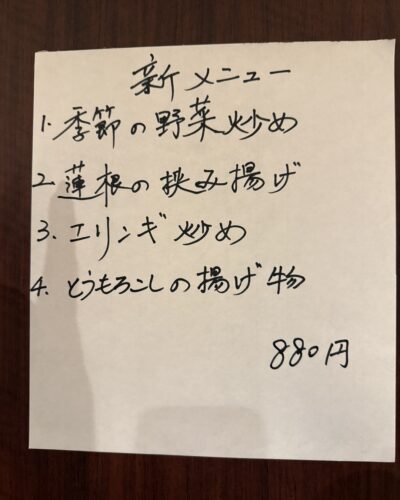 新メニュー
1. 季節の野菜炒め
2. 蓮根の挟み揚げ
3. エリンギ炒め
4. とうもろこしの揚げ物
880円